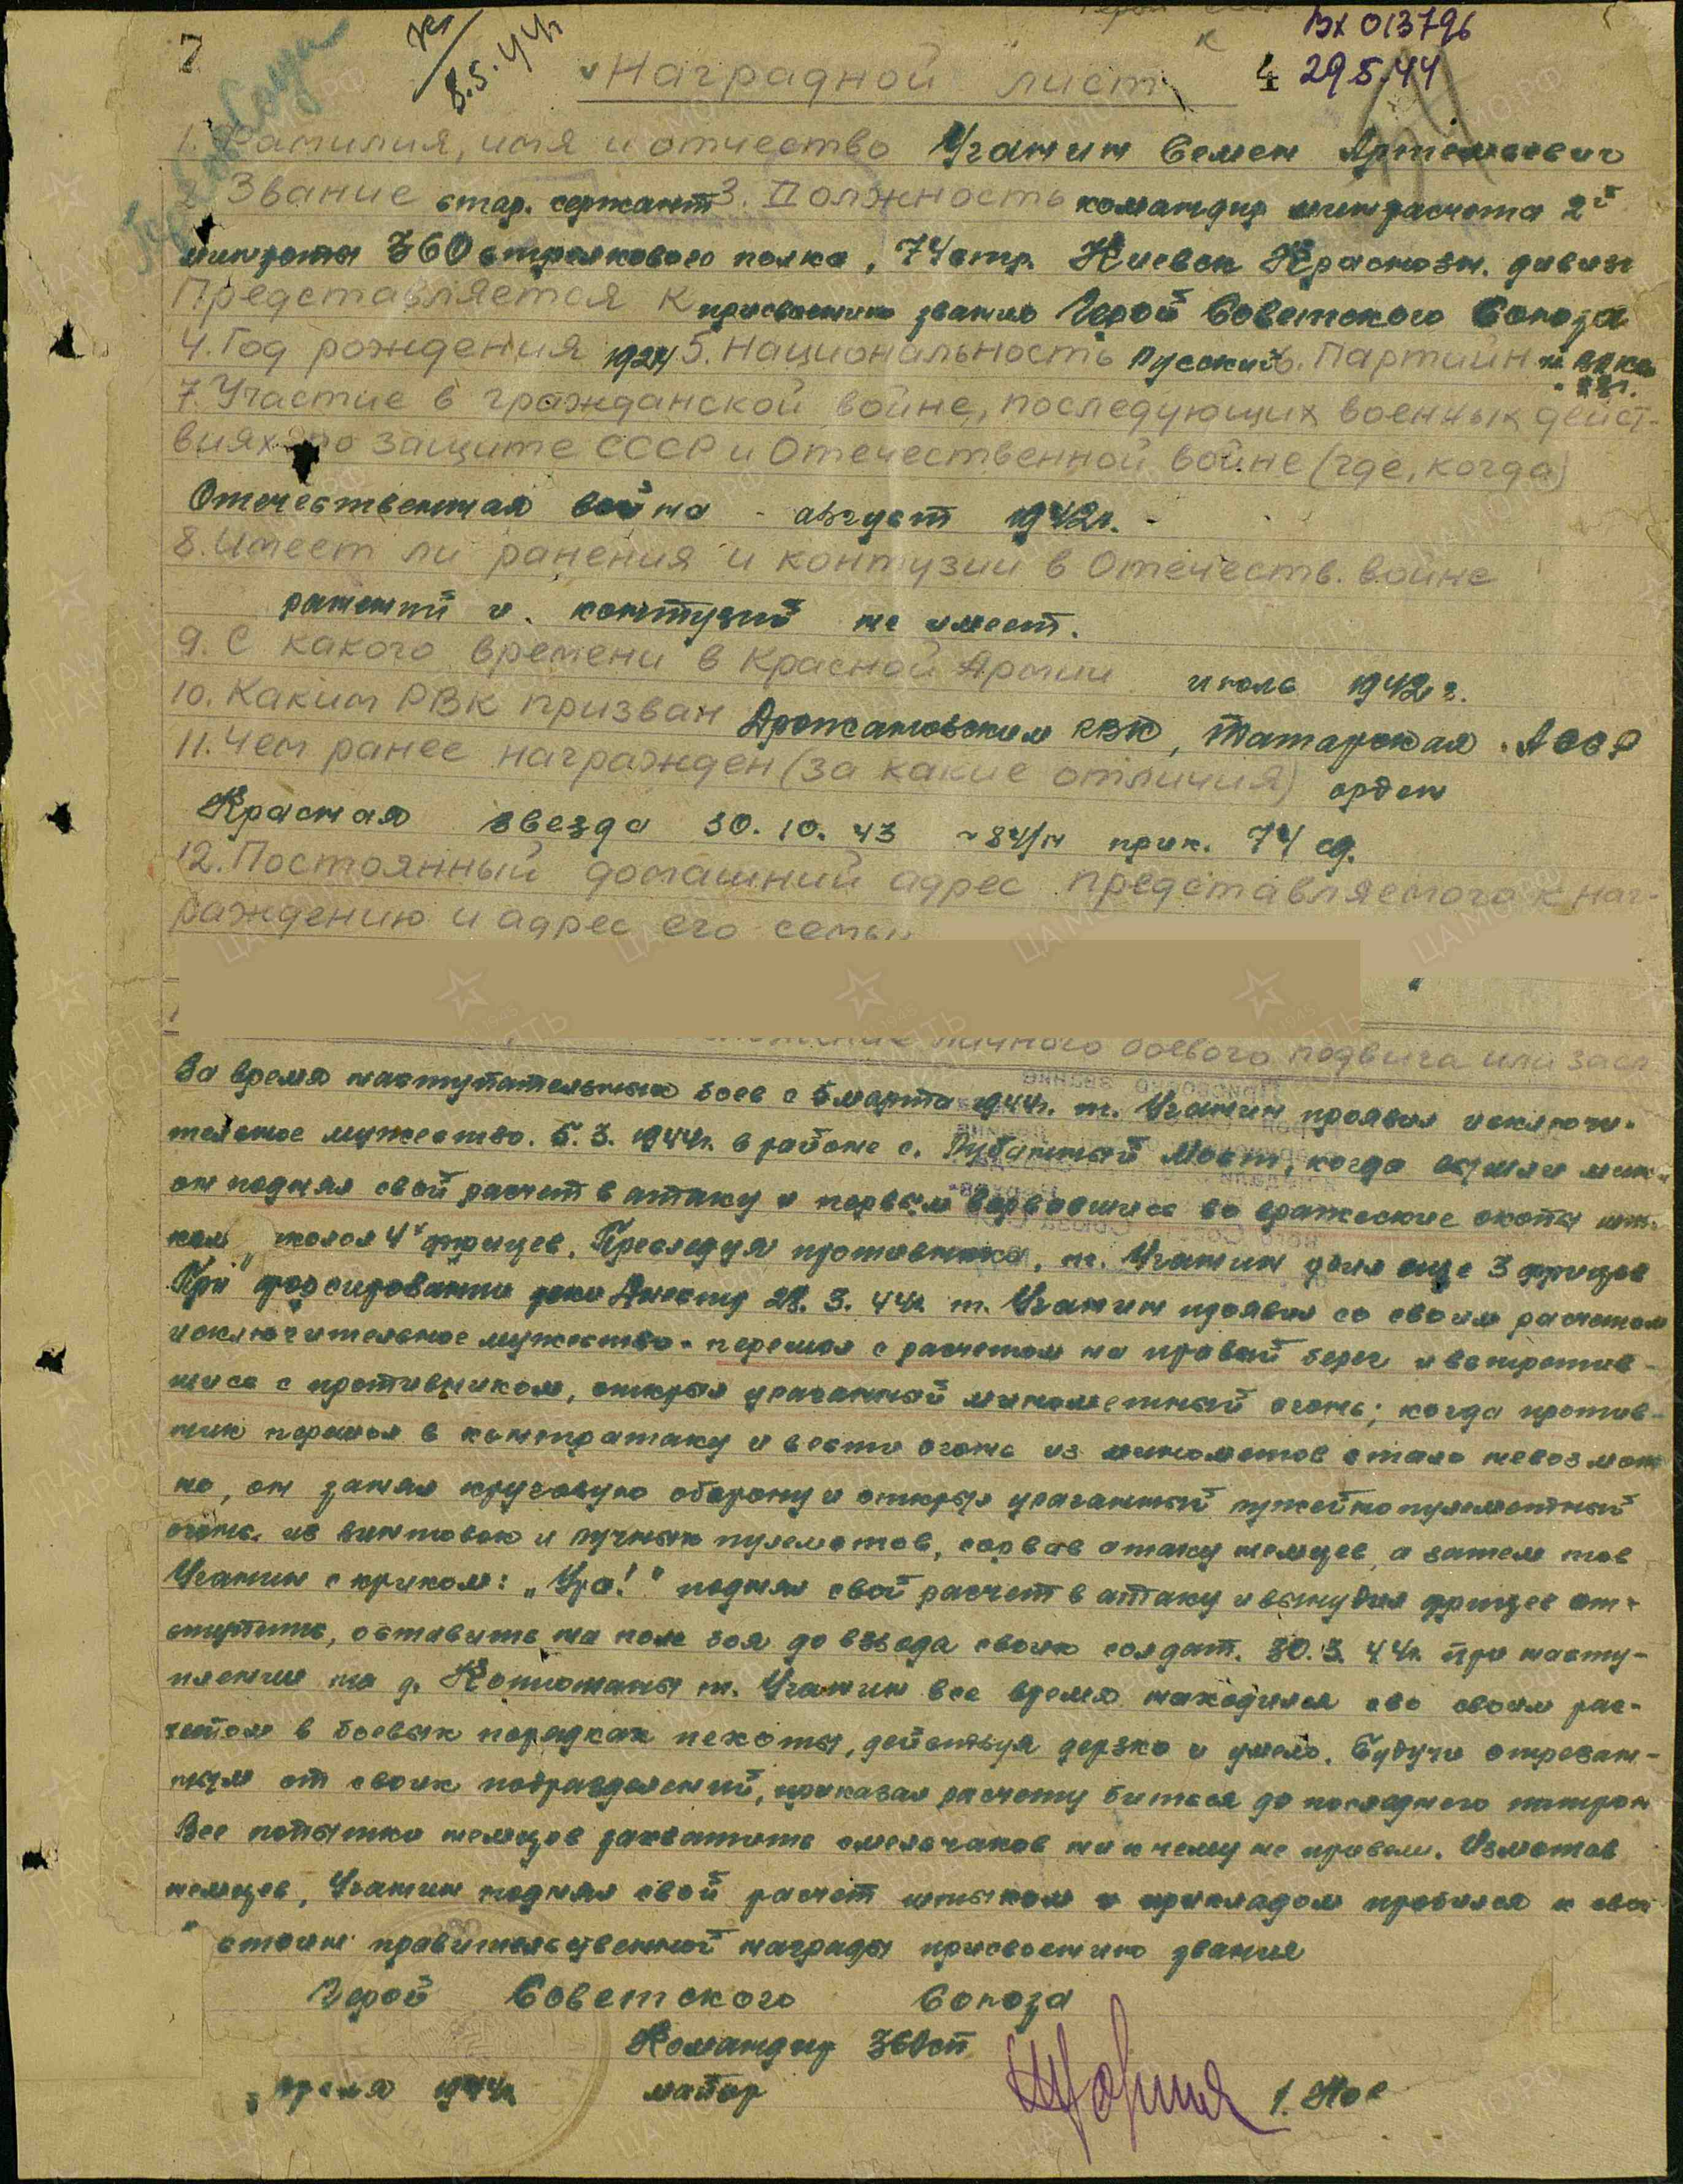 7
8.5.44г
Вх 013796
4 29.5.44
Наградной лист
1. Фамилия, имя и отчество Уганин Семен Артемьевич
2. Звание стар. сержант 3. Должность командир минрасчета 2й
минроты 360 стрелкового полка, 74 стр. Киевск Краснозн. дивизи
Представляется к присвоению звания Герой Советского Союза
4. Год рождения 1924 5. Национальность Русский 6. Партийн
7. Участие в гражданской войне, последующих военных дейст-
виях по защите СССР и Отечественной войне (где, когда)
Отечественная война - август 1942г. -
8. Имеет ли ранения и контузии в Отечеств. войне
ранений и контузий не имеет.
9. С какого времени в Красной Армии июль 1942 г.
10. Каким РВК призван Дрожановским РВК, Татарская АССР
11. Чем ранее награжден (за какие отличия) орден
Красная звезда 30.10.43 № 84/н прик. 74 сд.
12. Постоянный домашний адрес представляемого к наг-
раждению и адрес его семьи
личного боевого подвига или засл
За время наступательных боев с 5 марта 1944г. т. Уганин проявил исключи-
тельное мужество. 5.3.1944г. в районе с. Рубанный Мост, когда
он поднял свой расчет в атаку и первым ворвавшись во вражеские окопы шты-
ком заколол 4х фрицев. Преследуя противника, т. Уганин убил еще 3 фрицев
При форсировании реки Днестр 28.3.44г. т. Уганин проявил со своим расчетом
исключительное мужество - перешел с расчетом на правый берег и встретив-
шись с противником, открыл ураганный минометный огонь; когда против-
ник перешел в контратаку и вести огонь из минометов стало невозмож
но, он занял круговую оборону и открыл ураганный ружейно пулеметный
огонь из винтовок и ручных пулеметов, сорвав атаку немцев, а затем тов
Уганин с криком: „Ура!" поднял свой расчет в атаку и вынудил фрицев от-
ступить, оставить на поле боя до взвода своих солдат. 30.3.44г. при насту-
плении на д. т. Уганин все время находился со своим рас-
четом в боевых порядках пехоты, действуя дерзко и умело. Будучи отрезан-
ным от своих подразделений, приказал расчету биться до последнего патрон
Все попытки немцев захватить смельчаков ни к чему не привели. Измотав
немцев, Уганин поднял свой расчет штыком и прикладом пробился к свои
стоин правительственной награды присвоению звания
Герой Советского Союза
Командир 360сп
1944г майор